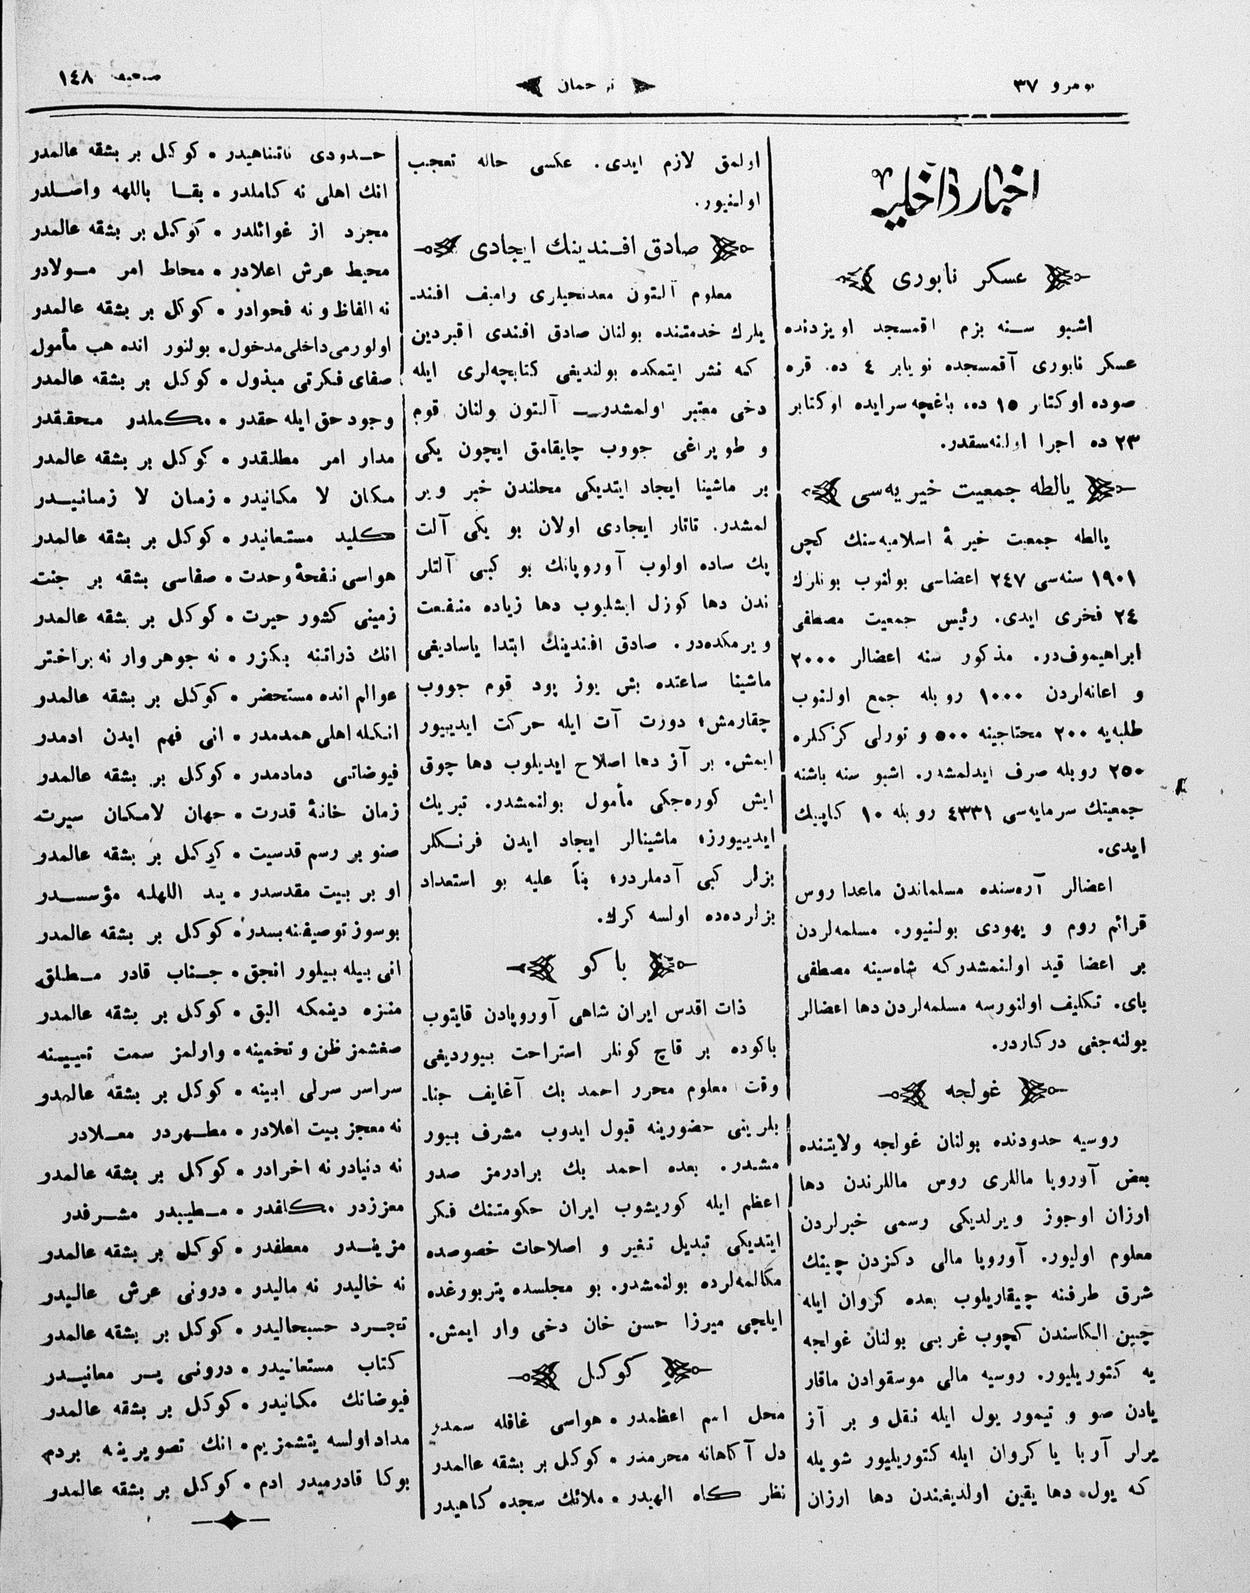 نومرو ٣٧
ترجمان
صحيفه ١٤٨
اخبار داخليه
عسكر نابورى
اشبو سنه بزم اقمسجد اويزدنده
عسكر نابورى آقمسجده نويابر ٤ ده. قره
صوده اوكتار ١٥ ده، باغچه سرايده اوكتابر
٢٣ ده اجرا اولنه‌سقدر.
يالطه جمعيت خيريه‌سى
يالطه جمعيت خيرۀ اسلاميه‌سنك كچن
١٩٠١ سنه‌سى ٢٤٧ اعضاسى بولنوب بونلرك
٢٤ فخرى ايدى. رئيس جمعيت مصطفى
ابراهيموف‌در. مذكور سنه اعضالر ٢٠٠٠
و اعانه‌لردن ١٠٠٠ روبله جمع اولنوب
طلبه‌يه ٢٠٠ محتاجينه ٥٠٠ و تورلى كزكلره
٢٥٠ روبله صرف ايدلمشدر. اشبو سنه باشنه
جمعيتك سرمايه‌سى ٤٣٣١ روبله ١٠ كاپيك
ايدى.
اعضالر آره‌سنده مسلماندن ماعدا روس
قرائم روم و يهودى بولنيور. مسلمه‌لردن
بر اعضا قيد اولنمشدركه شاه‌سينه مصطفى
باى. تكليف اولنورسه مسلمه‌لردن دها اعضالر
بولنه‌جغى دركاردر.
غولجه
روسيه حدودنده بولنان غولجه ولايتنده
بعض آوروپا ماللرى روس ماللرندن دها
اوزان اوجوز ويرلديكى رسمى خبرلردن
معلوم اوليور. آوروپا مالى دكزدن چينك
شرق طرفنه چيقاريلوب بعده كروان ايله
چين الكاسندن كچوب غربى بولنان غولجه
يه كتوريليور. روسيه مالى موسقوادن ماقار
يادن صو و تيمور يول ايله نقل و بر آز
يرلر آربا يا كروان ايله كتوريليور شويله
كه يول دها يقين اولديغندن دها ارزان
اولمق لازم ايدى. عكسى حاله تعجب
اولنيور.
صادق افندينك ايجادى
معلوم آلتون معدنجيلرى راميف افند-
يلرك خدمتنده بولنان صادق افندى اقبردين
كه نشر ايتمكده بولنديغى كتابچه‌لرى ايله
دخى معتبر اولمشدر — آلتون ولنان قوم
و طوپراغى جووب چايقامق ايچون يكى
بر ماشينا ايجاد ايتديكى محلندن خبر وير
لمشدر. تاتار ايجادى اولان بو يكى آلت
پك ساده اولوب آوروپانك بو كبى آلتلر
ندن دها كوزل ايشليوب دها زياده منفعت
ويرمكده‌در. صادق افندينك ابتدا ياساديغى
ماشينا ساعتده بش يوز پود قوم جووب
چقارمش؛ دورت آت ايله حركت ايدييور
ايمش. بر آز دها اصلاح ايديلوب دها چوق
ايش كوره‌جكى مأمول بولنمشدر. تبريك
ايدييورز؛ ماشينالر ايجاد ايدن فرنكلر
بزلر كبى آدملردر؛ بناً عليه بو استعداد
بزلرده‌ده اولسه كرك.
باكو
ذات اقدس ايران شاهى آوروپادن قايتوب
باكوده بر قاچ كونلر استراحت بيورديغى
وقت معلوم محرر احمد بك آغايف جنا-
بلرينى حضورينه قبول ايدوب مشرف بيور
مشدر. بعده احمد بك برادرمز صدر
اعظم ايله كوريشوب ايران حكومتنك فكر
ايتديكى تبديل تغير و اصلاحات خصوصده
مكالمه‌لرده بولنمشدر. بو مجلسده پتربورغده
ايلچى ميرزا حسن خان دخى وار ايمش.
كوكل
محل اسم اعظمدر • هواسى غافله سمدر
دل آكاهانه محرمدر • كوكل بر بشقه عالمدر
نظر كاه الهيدر • ملائك سجده كاهيدر
حدودى نامتناهيدر • كوكل بر بشقه عالمدر
انك اهلى نه كاملدر • بقا بالله واصلدر
مجرد از غوائلدر • كوكل بر بشقه عالمدر
محيط عرش اعلادر • محاط امر مولادر
نه الفاظ و نه فحوادر • كوكل بر بشقه عالمدر
اولورمى داخلى مدخول • بولنور انده هب مأمول
صفاى فكرتى مبذول • كوكل بر بشقه عالمدر
وجود حق ايله حقدر • مكملدر محققدر
مدار امر مطلقدر • كوكل بر بشقه عالمدر
مكان لا مكانيدر • زمان لا زمانيدر
كليد مستعانيدر • كوكل بر بشقه عالمدر
هواسى نفحۀ وحدت • صفاسى بشقه بر جنت
زمينى كشور حيرت • كوكل بر بشقه عالمدر
انك ذراتنه بكزر • نه جوهر وار نه بر اختر
عوالم انده مستحضر • كوكل بر بشقه عالمدر
انكله اهلى همدمدر • انى فهم ايدن ادمدر
فيوضاتى دمادمدر • كوكل بر بشقه عالمدر
زمان خانۀ قدرت • جهان لامكان سيرت
صنوبر رسم قدسيت • كوكل بر بشقه عالمدر
او بر بيت مقدسدر • يد اللهله مؤسسدر
بوسوز توصيفنه بسدر • كوكل بر بشقه عالمدر
انى بيله بيلور انجق • جناب قادر مطلق
منزه دينمكه اليق • كوكل بر بشقه عالمدر
صغشمز ظن و تخمينه • وارلمز سمت تعيينه
سراسر سرلى ابينه • كوكل بر بشقه عالمدر
نه معجز بيت اعلادر • مطهردر معلادر
نه دنيادر نه اخرادر • كوكل بر بشقه عالمدر
معززدر مكافدر • مطيبدر مشرفدر
مزيندر معطفدر • كوكل بر بشقه عالمدر
نه خاليدر نه ماليدر • درونى عرش عاليدر
تجرد حسبحاليدر • كوكل بر بشقه عالمدر
كتاب مستعانيدر • درونى پر معانيدر
فيوضاتك مكانيدر • كوكل بر بشقه عالمدر
مداد اولسه يتشمز يم • انك تصويرينه بردم
بوكا قادرميدر ادم • كوكل بر بشقه عالمدر